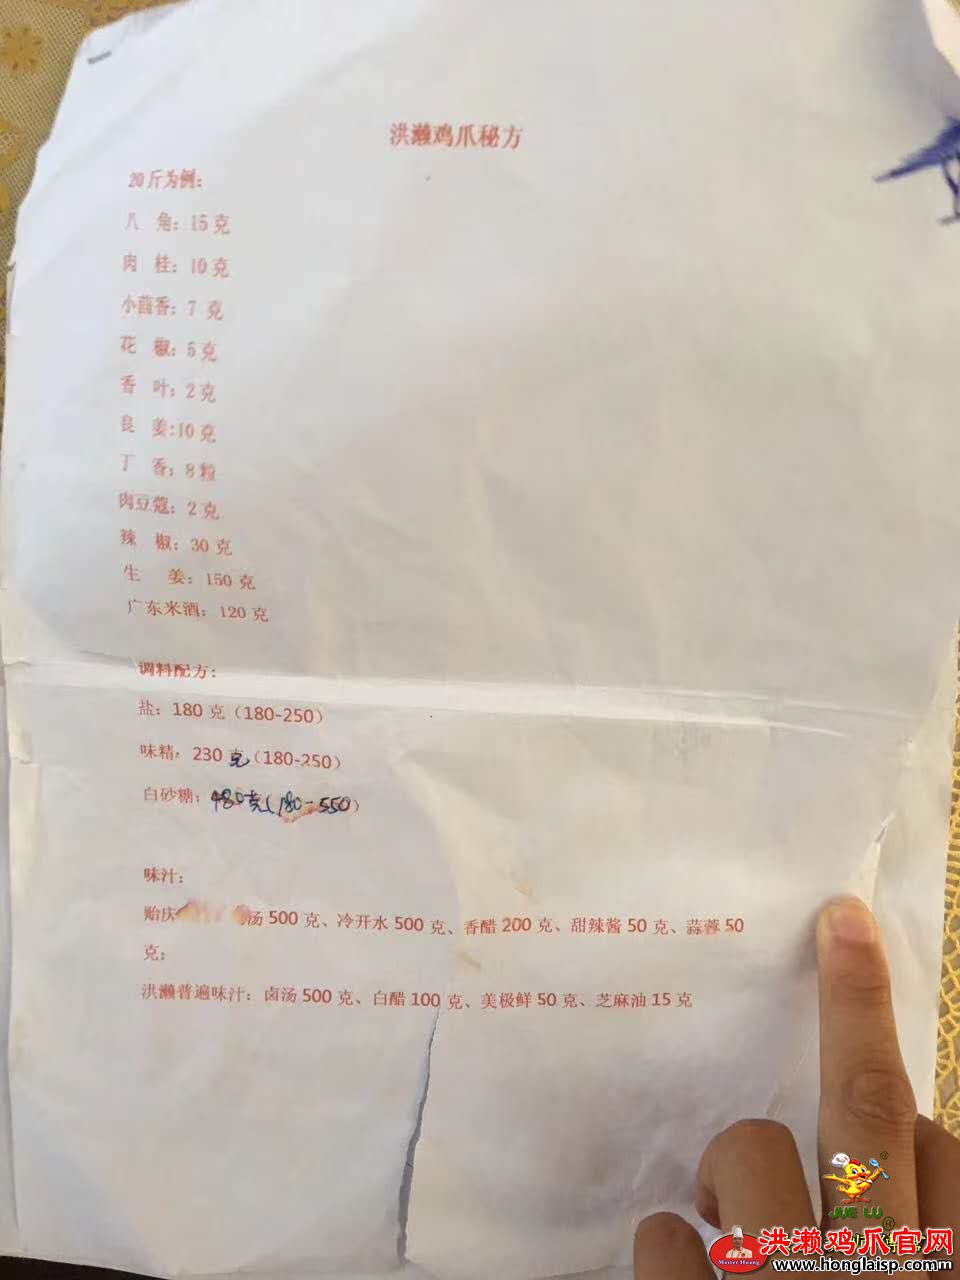 洪濑鸡爪秘方
20斤为例：
八 角：15克
肉 桂：10克
小茴香：7 克
花 椒：5克
香 叶：2克
良 姜:10克
丁 香：8粒
肉豆蔻：2克
辣 椒：30克
生 姜：150克
广东米酒：120克
调料配方：
盐：180克（180-250）
味精：230克（180-250）
白砂糖：480克（180-550）
味汁：
贻庆 汤500克、冷开水500克、香醋200克、甜辣酱50克、蒜蓉50
克；
洪濑普遍味汁：卤汤500克、白醋100克、美极鲜50克、芝麻油15克
JUE W®
Master Huang
洪濑鸡爪官网
www.honglaisp.com